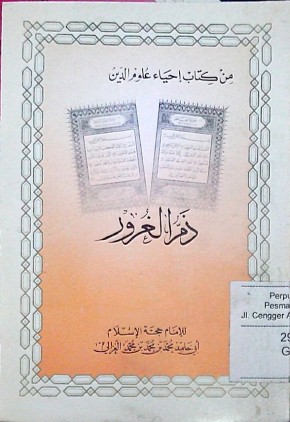 من كتاب إحياء علوم الدين
ذم الغرور
للإمام حجة الإسلام
أبي حامد محمد بن محمد بن محمد الغزالي
Perpu
Pesma
Jl. Cengger A
29
G